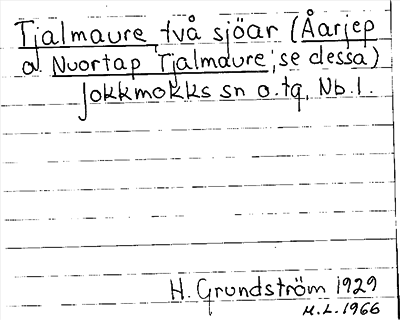 Tjalmaure två sjöar (Åarjep
o. Nuortap Tjalmaure, se dessa)
Jokkmokks sn o. tg, Nb l.
H. Grundström 1929
H.L. 1966